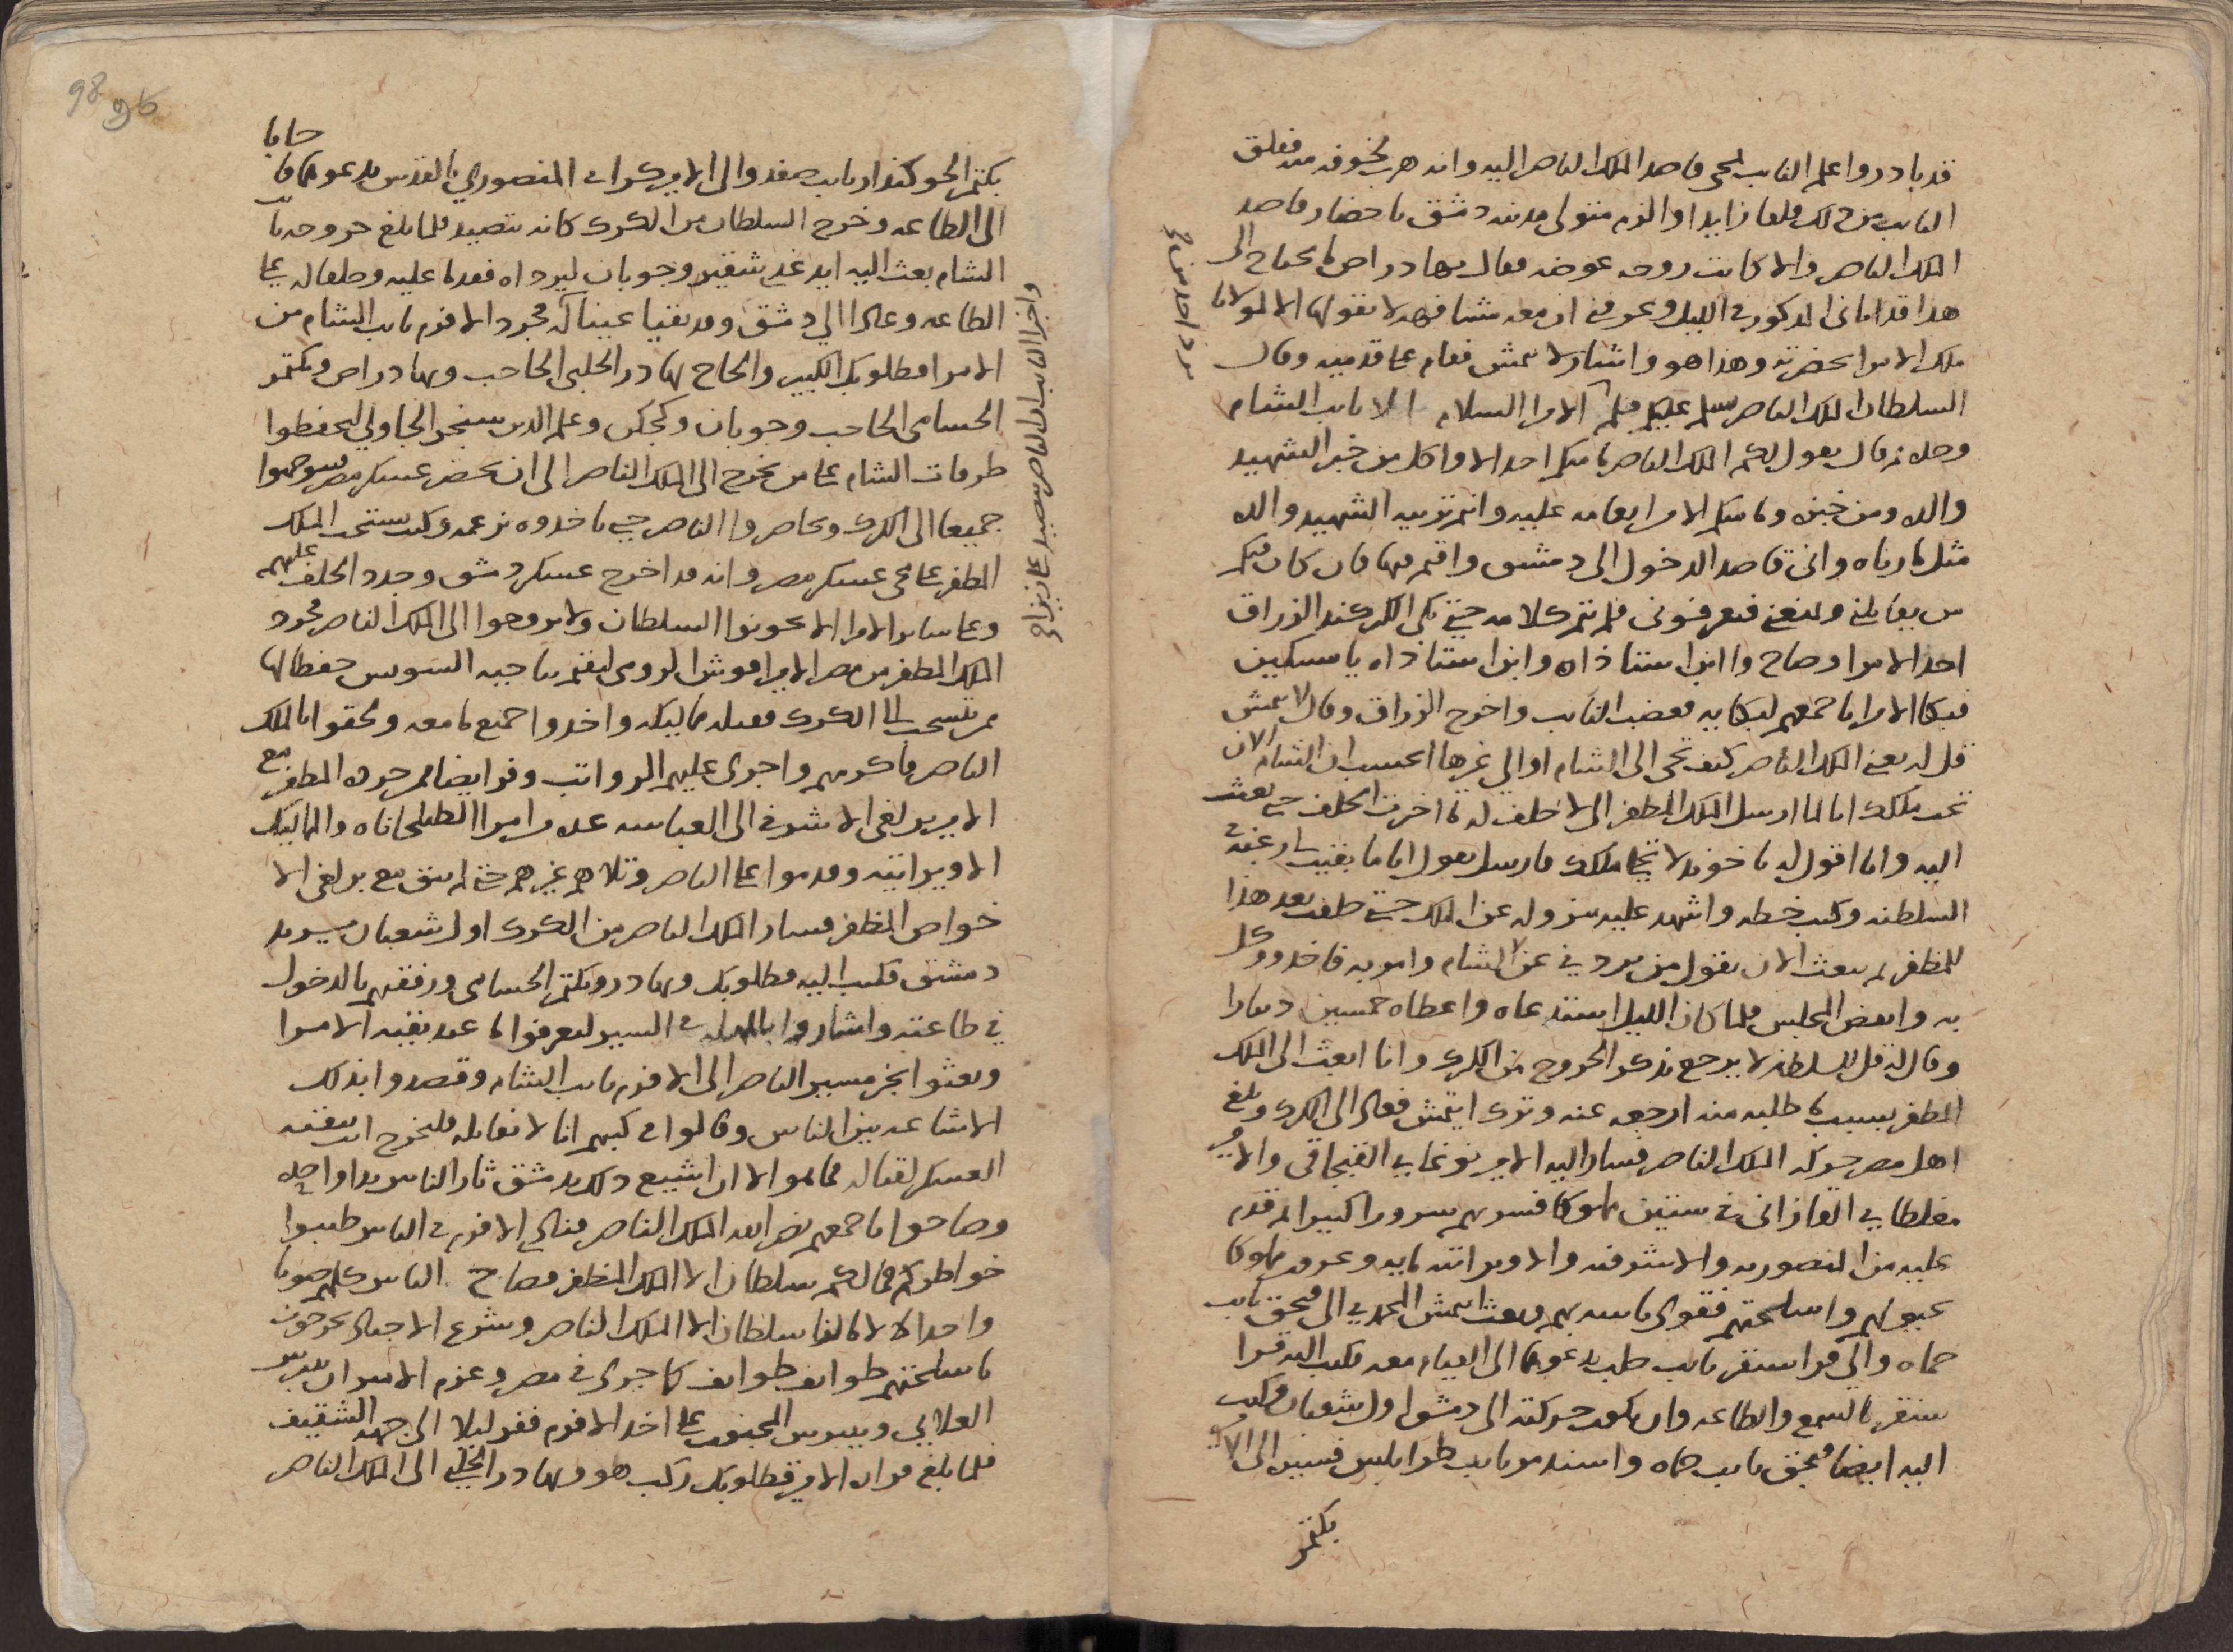 قد بادروا علم النايب لمجى قاصد الملك الناصر اليه وانه هرب لخوفه منه فقلق
النايب من ذلك قلقا زايدا والزم متولى مدينه دمشق باحضار قاصد
الملك الناصر والا كانت روحه عوضه فقال بهادراص ما يحتاج الى
هذا قد اتانى المذكور فى الليل وعرفنى ان معه مشافهه لا يقولها الا لمولانا
ملك الامرا بحضرته وهذا هو واشار لايتمش فقام على قدميه وقال
السلطان الملك الناصر يسلم عليكم فلم الامرا السلام الا نايب الشام
وحده ثم قال يقول لكم الملك الناصر ما منكم احد الا واكل من خبز الشهيد
والده ومن خبزه وما منكم الا من انعامه عليه وانتم تربيه الشهيد والده
مثل ما رباه وانى قاصد الدخول الى دمشق واقيم فيها فان كان فيكم
من يقاتلنى ويمنعنى فتعرفونى فلم يتم كلامه حتى بكى الكركند الزراق
احد الامرا وصاح وا ابن استاذاه وابن استاذاه يا مسكين
فبكا الامرا باجمعهم لبكايه فغضب النايب واخرج الزراق وقال لايتمش
قل له يعنى الملك الناصر كيف تجى الى الشام او الى غيرها اتحسب ان الشام الان
تحت ملكك انا لما ارسل الملك المظفر الى لاحلف له ما اخرت الحلف حتى بعثت
اليه وانا اقول له يا خوند لا تخلى ملكك فارسل يقول انا ما بقيت لى رغبه فى
السلطنه وكتب خطه واشهد عليه بنزوله عن الملك حتى حلفت بعد هذا
للمظفر ثم يبعث الان يقول من يردنى عن الشام وامر به فاخذ ووكل
به وانفض المجلس فلما كان الليل استدعاه واعطاه خمسين دينارا
وقال له قل للسلطان لا يرجع يذكر الخروج من الكرك وانا ابعث الى الملك
المظفر بسبب ما طلبه منه ارجعه عنه وترك ايتمش فعاد الى الكرك وبلغ
اهل مصر حركه الملك الناصر فسار اليه الامير نوغاى القبجاقى والامير
مغلطاى القازانى فى ستين مملوكا فسر بهم سرورا كبيرا ثم قدم
عليه من المنصوريه والاشرفيه والاويراتيه مايه وعشرون مملوكا
بخيولهم واسلحتهم فقوى باسه بهم وبعث ايتمش المحمدى الى قبجق نايب
حماه والى قراسنقر نايب حلب يدعوهما الى القيام معه فكتب اليه قرا
سنقر بالسمع والطاعه وان يكون حركته الى دمشق اول شعبان وكتب
اليه ايضا قبجق نايب حماه واسندمر نايب طرابلس فسير الى الامير
بكتمر
برد احد من
حايا
بكتمر الجوكندار نايب صفد والى الامير كراى المنصورى بالقدس يدعوهما فا
الى الطاعه وخرج السلطان من الكرك كانه يتصيد فلما بلغ خروجه نايب
الشام بعث اليه ايدغدى شقير وجوبان ليرداه فقدما عليه وحلفا له على
الطاعه وعادا الى دمشق وقد بقيا عينا له فجرد الافرم نايب الشام من
الامرا قطلوبك الكبير والحاج بهادر الحلبى الحاجب وبهادراص وبكتمر
الحسامى الحاجب وجوبان وكجكن وعلم الدين سنجر الجاولى ليحفظوا
طرقات الشام على من يخرج الى الملك الناصر الى ان يحضر عسكر مصر يتوجهوا
جميعا الى الكرك ويحاصروا الناصر حتى ياخذوه بزعمه وكتب يستحث الملك
المظفر على مجى عسكر مصر وانه قد اخرج عسكر دمشق وجدد الحلف عليهم
وعلى ساير الامرا الا يخونوا السلطان ولا يروحوا الى الملك الناصر فجرد
الملك المظفر من مصر الامير اقوش الرومى ليقيم بناحيه السويس حفظا لها
ممن يتسحب الى الكرك فقتله مماليكه واخذوا جميع ما معه ولحقوا بالملك
الناصر فاكرمهم واجرى عليهم الرواتب وفر ايضا ممن جرده المظفر مع
الامير برلغى الاشرفى الى العباسه عده من امرا الطبلخاناه والمماليك
الاويراتيه وقدموا على الناصر وتلاهم غيرهم حتى لم يبق مع برلغى الا
خواص المظفر فسار الملك الناصر من الكرك اول شعبان يريد
دمشق فكتب اليه قطلوبك وبهادر وبكتمر الحسامى ورفقتهم بالدخول
فى طاعته واشاروا بالمهله فى السير ليعرفوا ما عند بقيه الامرا
وبعثوا بخبر مسير الناصر الى الافرم نايب الشام وقصدوا بذلك
الاشاعه بين الناس وقالوا فى كتبهم انا لا نقاتله فليخرج انت ببقيه
العسكر لقتاله فما هو الا ان اشيع ذلك بدمشق ثار الناس يدا واحده
وصاحوا باجمعهم نصر الله الملك الناصر فنادى الافرم فى الناس طيبوا
خواطركم فما لكم سلطان الا الملك المظفر فصاح الناس كلهم صوتا
واحدا لا لا ما لنا سلطان الا الملك الناصر وشرع الاجناد يخرجون
باسلحتهم طوايف طوايف كما جرى فى مصر وعزم الاميران بيبرس
العلايى وبيبرس المجنون على اخذ الافرم ففر ليلا الى جهه الشقيف
فلما بلغ فراره الامير قطلوبك ركب هو وبهادر الحلبى الى الملك الناصر
واخبر النايب ان الناصر يتصيد